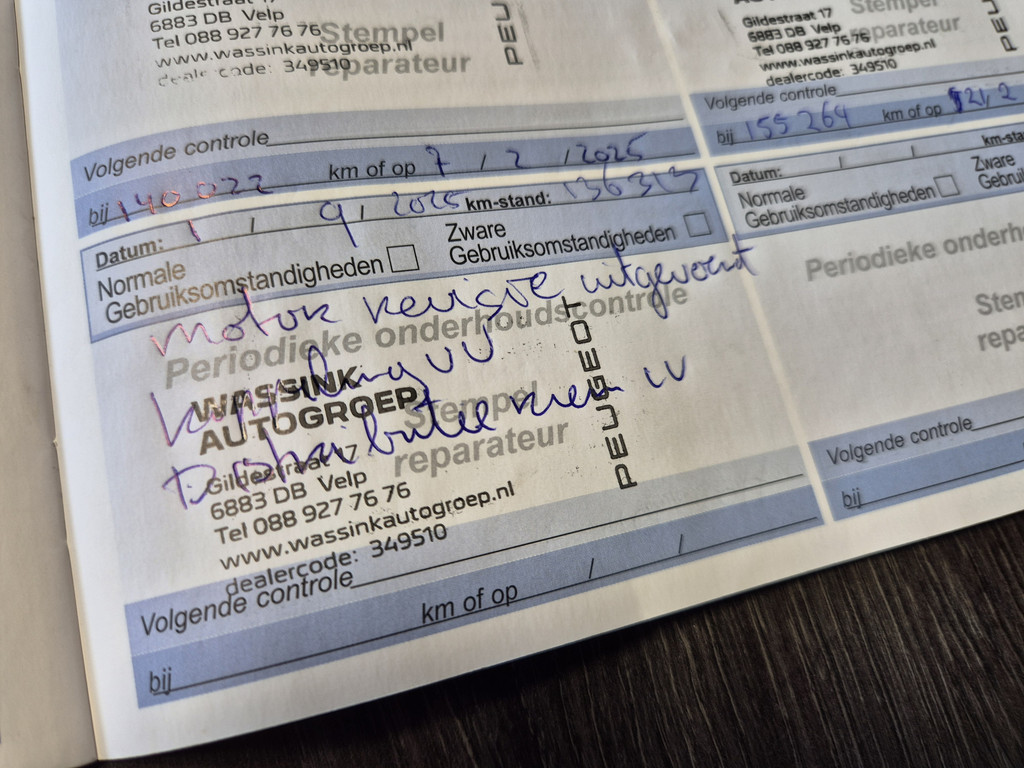 Gildestraat 17
6883 DB Velp
Tel 088 927 76 76
Stempel
www.wassinkautogroep.nl
reparateur
dealercode: 349510
Volgende controle
bij 140022 km of op 7 / 2 / 2025
Datum: 1 / 9 / 2025 km-stand: 136313
Normale Gebruiksomstandigheden
Zware Gebruiksomstandigheden
motor revisie uitgevoerd
Periodieke onderhoudscontrole
koppeling VV
WASSINK
AUTOGROEP
PEUGEOT
Stempel
Distributie riem VV
reparateur
Gildestraat 17
6883 DB Velp
Tel 088 927 76 76
www.wassinkautogroep.nl
dealercode: 349510
Volgende controle
km of op / /
bij
Stempel
Gildestraat 17
reparateur
6883 DB Velp
Tel 088 927 76 76
www.wassinkautogroep.nl
dealercode: 349510
Volgende controle
bij 155264 km of op
Datum: / / km-sta
Normale Gebruiksomstandigheden
Zware
Gebruik
Periodieke onderh
Stem
repa
Volgende controle
bij